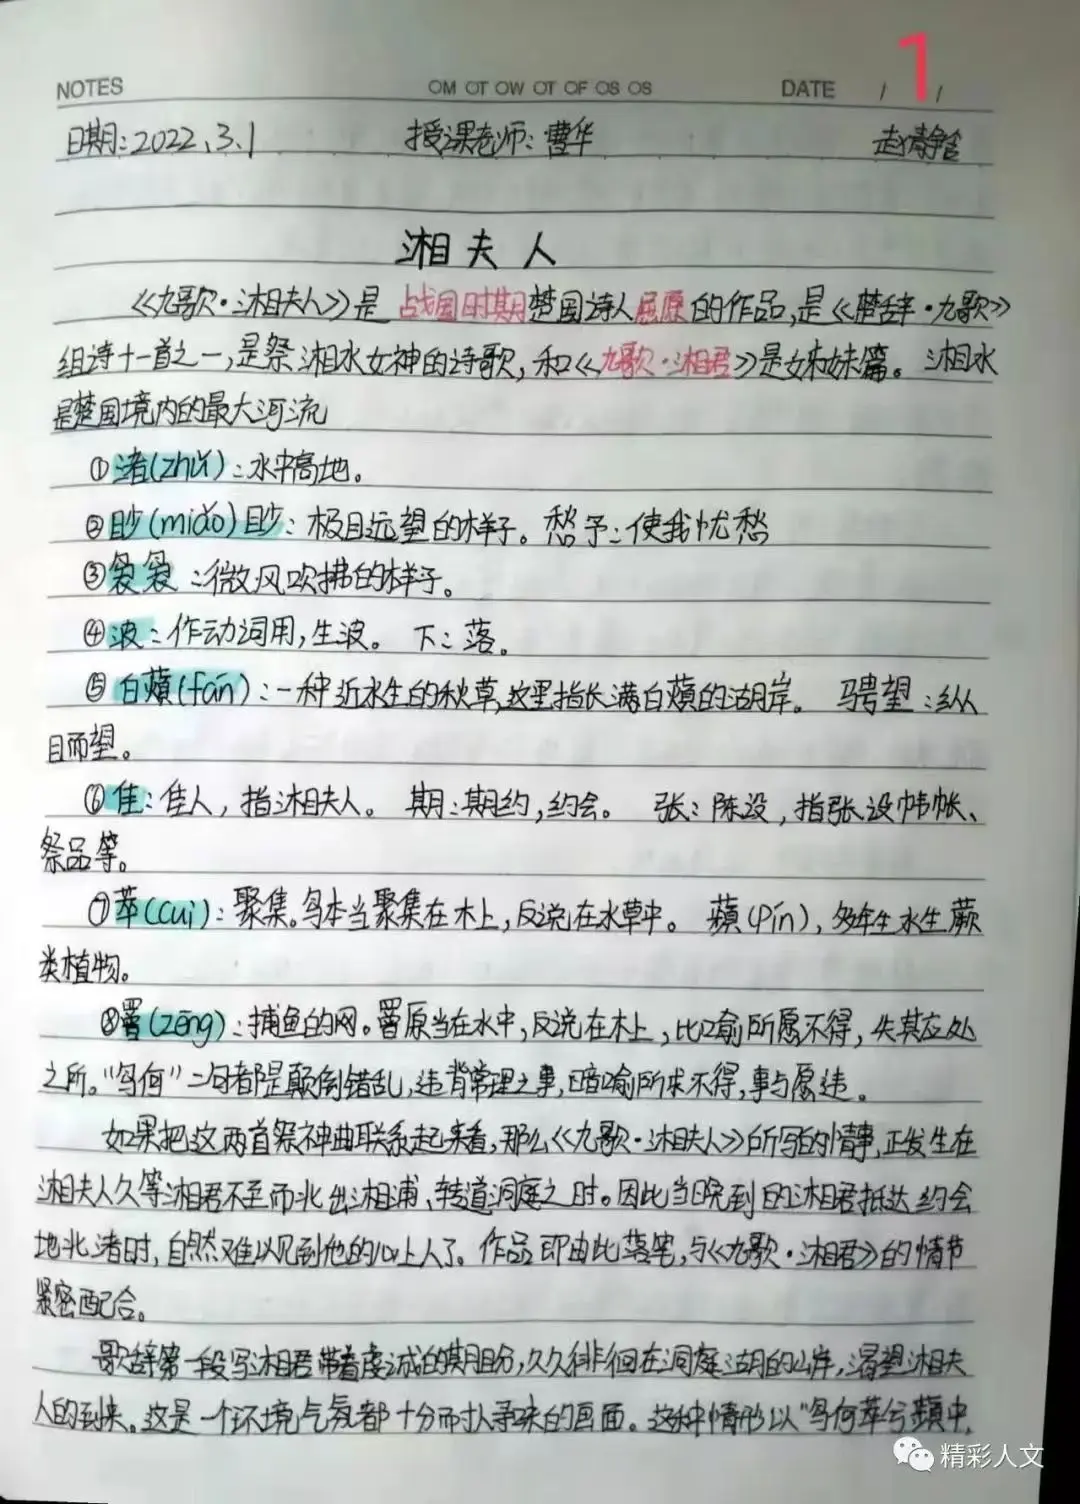 1
NOTES OM OT OW OT OF OS OS DATE / /
日期:2022.3.1 授课老师:曹华 赵静
湘夫人
《九歌·湘夫人》是战国时期楚国诗人屈原的作品,是《楚辞·九歌》
组诗十一首之一,是祭湘水女神的诗歌,和《九歌·湘君》是姊妹篇。湘水
是楚国境内的最大河流
①渚(zhǔ):水中高地。
②眇(miǎo)眇:极目远望的样子。愁予:使我忧愁
③袅袅:微风吹拂的样子。
④波:作动词用,生波。 下:落。
⑤白薠(fán):一种近水生的秋草,这里指长满白薠的湖岸。 骋望:纵
目而望。
⑥佳:佳人,指湘夫人。 期:期约,约会。 张:陈设,指张设帏帐、
祭品等。
⑦萃(cuì):聚集。鸟本当聚集在木上,反说在水草中。 蘋(pín),多年生水生蕨
类植物。
⑧罾(zēng):捕鱼的网。罾原当在水中,反说在木上,比喻所愿不得,失其应处
之所。“鸟何”二句都是颠倒错乱,违背常理之事,暗喻所求不得,事与愿违。
如果把这两首祭神曲联系起来看,那么《九歌·湘夫人》所写的情事,正发生在
湘夫人久等湘君不至而北出湘浦、转道洞庭之时。因此当晚到的湘君抵达约会
地北渚时,自然难以见到他的心上人了。作品即由此落笔,与《九歌·湘君》的情节
紧密配合。
歌辞第一段写湘君带着虔诚的期盼,久久徘徊在洞庭湖的山岸,渴望湘夫
人的到来。这是一个环境气氛都十分耐人寻味的画面。这种情形以“鸟何萃兮蘋中,
精彩人文